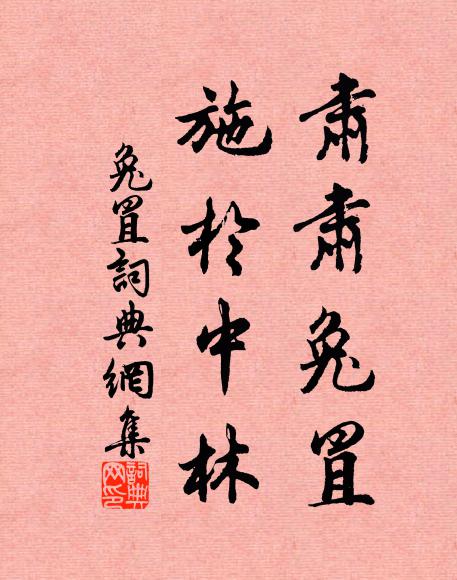 肅肅兔罝
施於中林
兔罝詞典網集
詞典網印